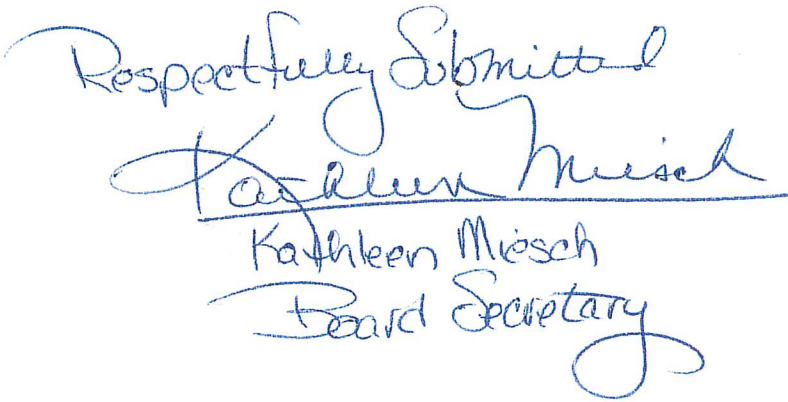 Respectfully Submitted
Kathleen Miesch
Kathleen Miesch
Board Secretary